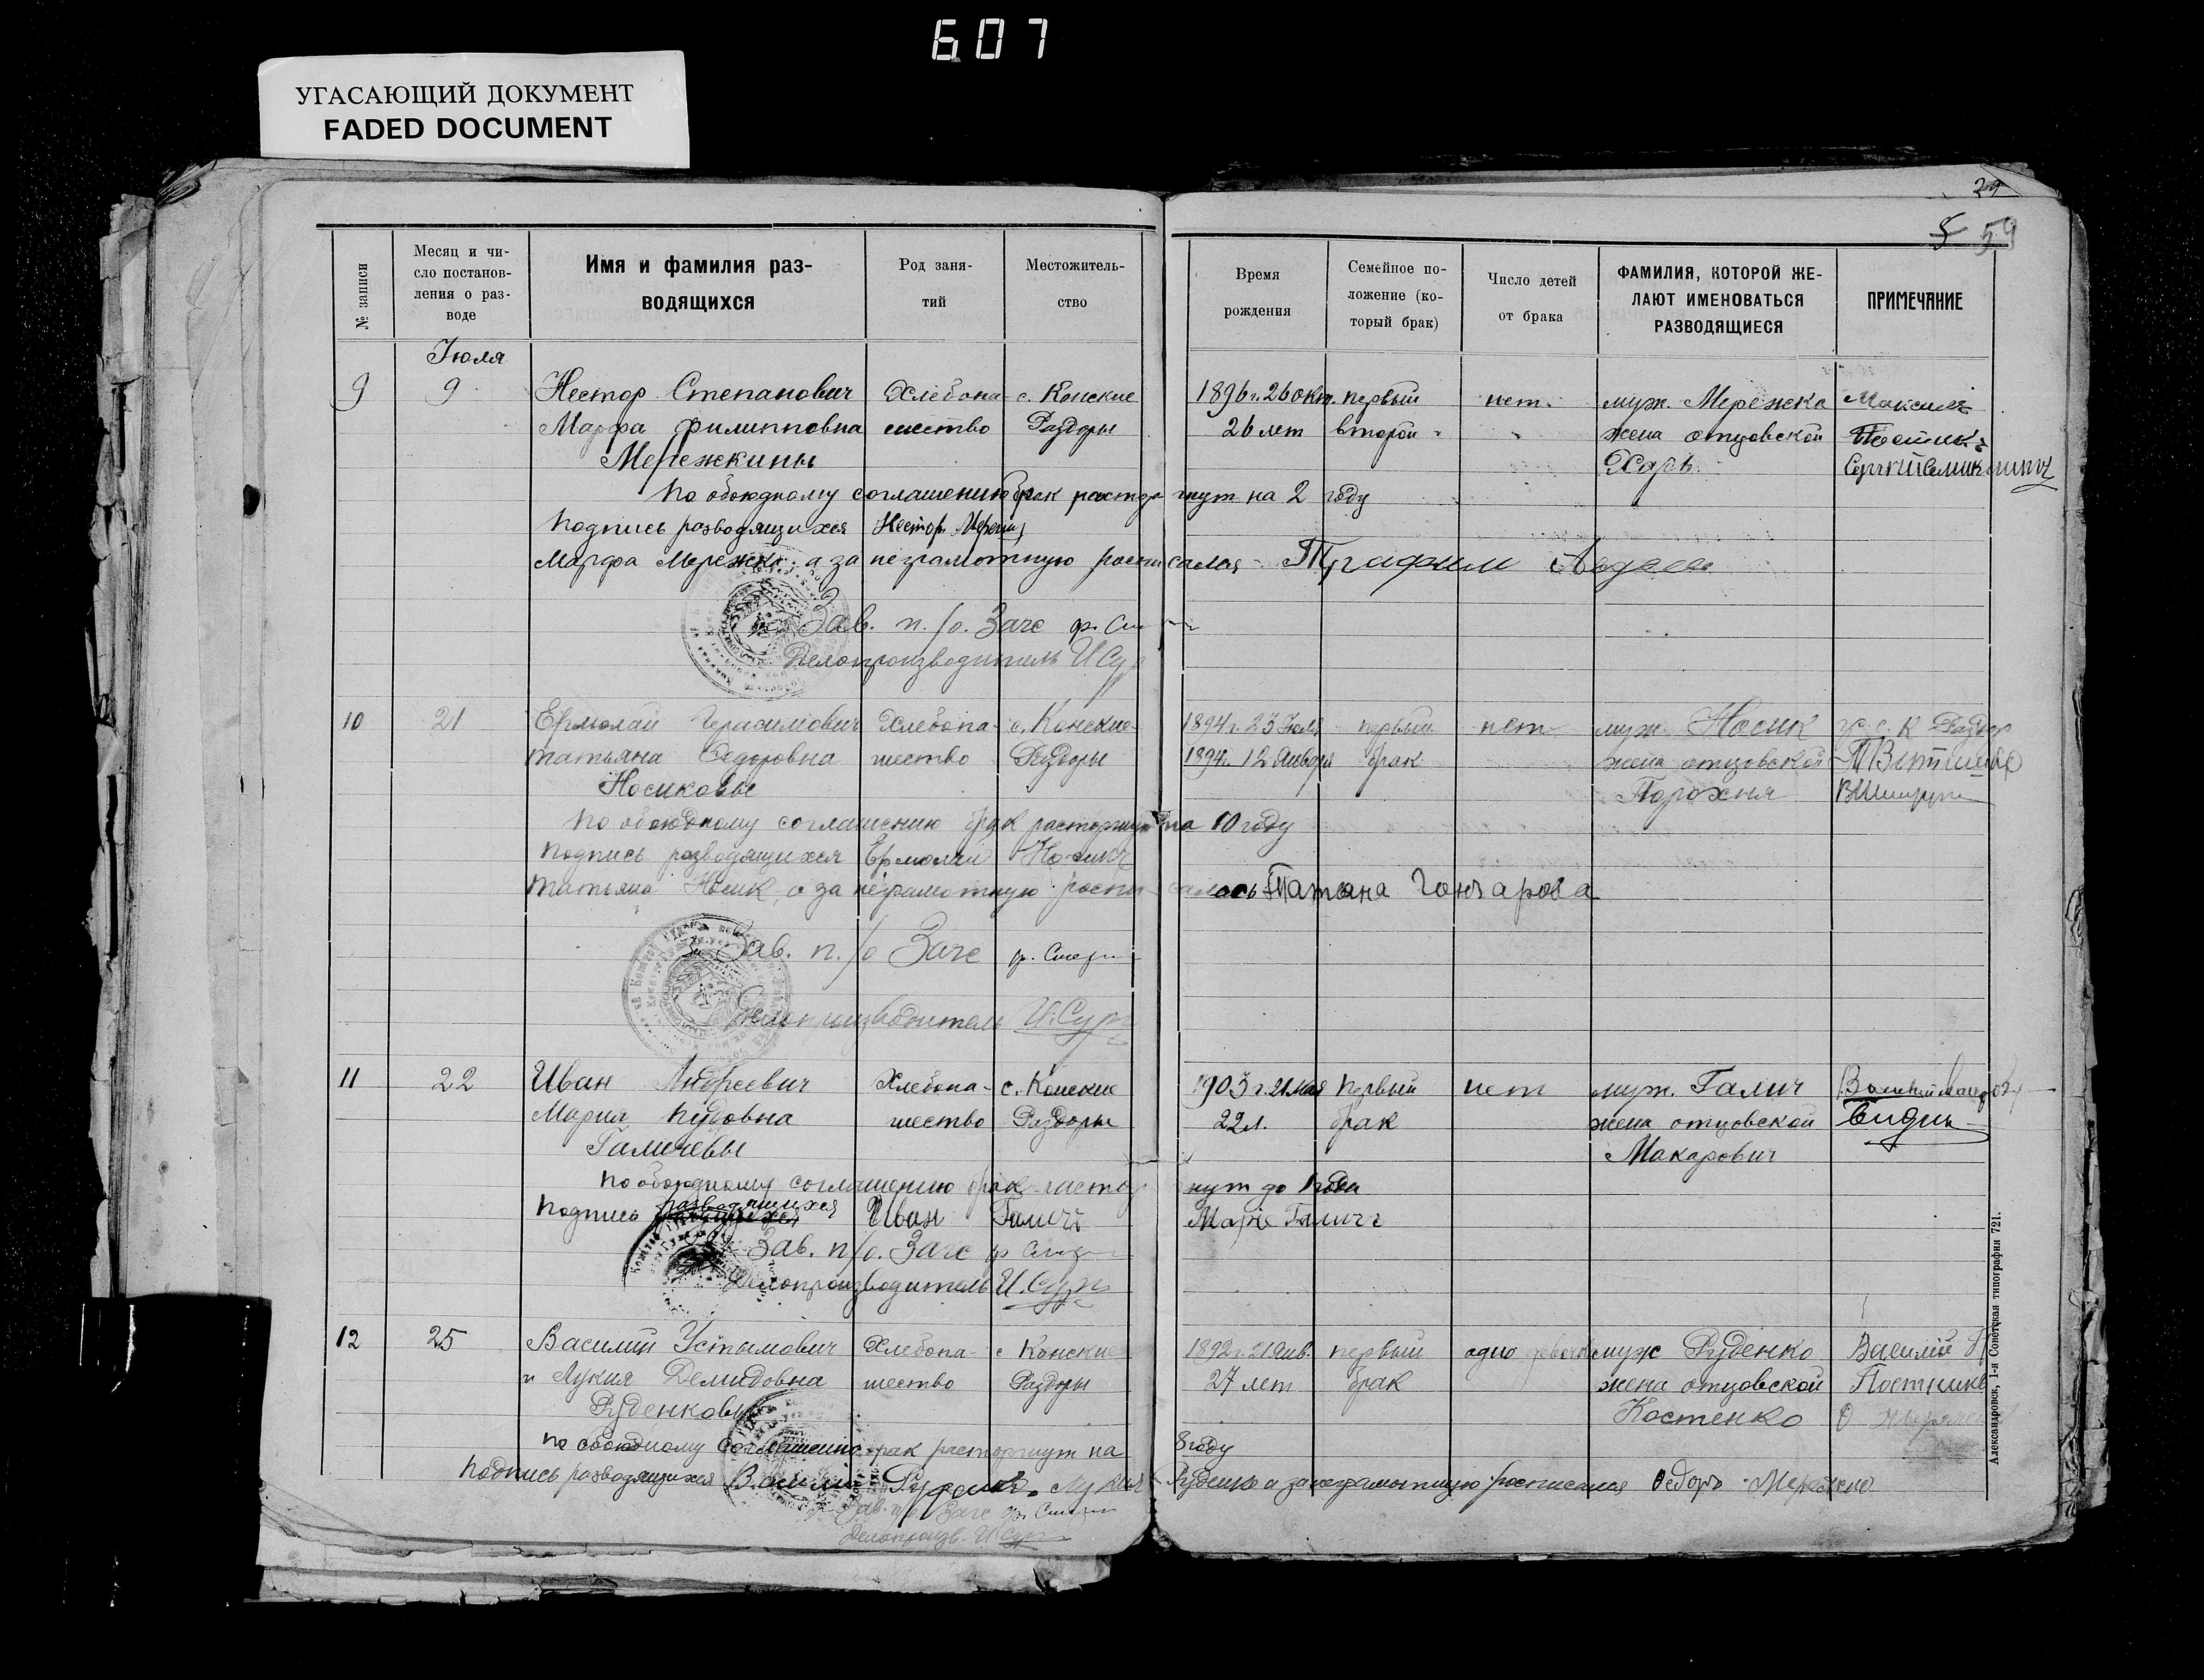 607
УГАСАЮЩИЙ ДОКУМЕНТ
FADED DOCUMENT
29
59
№ записи
Месяц и чи-
сло постанов-
ления о раз-
воде
Имя и фамилия раз-
водящихся
Род заня-
тий
Местожитель-
ство
Время
рождения
Семейное по-
ложение (ко-
торый брак)
Число детей
от брака
ФАМИЛИЯ, КОТОРОЙ ЖЕ-
ЛАЮТ ИМЕНОВАТЬСЯ
РАЗВОДЯЩИЕСЯ
ПРИМЕЧАНИЕ
Июля
9 9 Нестор Степанович Хлебопа- с. Конские 1896 г. 26 окт. первый нет. муж. Мережка
Марфа Филипповна шество Раздоры 26 лет второй жена отцовской
Мережкины Харь
По обоюдному соглашению брак расторгнут на 2 году
Подпись разводящихся Нестор
Марфа Мережко а за неграмотную расписался
Зав. п./о. Загс
Делопроизводитель И Сур
10 21 Ермолай Герасимович Хлебопа- с. Конские 1894 г. 23 Июля первый нет муж Носик
Татьяна Федоровна шество Раздоры 1894 г. 12 Января брак жена отцовской
Носиковы Порохня
По обоюдному соглашению брак расторгнут на 10 году
Подпись разводящихся Ермолай Носик
Татьяна Носик, а за неграмотную роспи-салась Татяна Гончарова
Зав. п./о Загс
Делопроизводитель И. Сур
11 22 Иван Андреевич Хлебопа- с. Конские 1903 г. 21 мая первый нет муж. Галич
Мария Пудовна шество Раздоры 22 л. брак жена отцовской
Галичевы Макарович
По обоюдному соглашению брак расторгнут до 1 года
Подпись разводящихся Иван Галичь Марiе Галичь
Зав. п/о. Загс
Делопроизводитель И. Сур
12 25 Василий Устимович Хлебопа- с Конские 1892 г. 21 Янв. первый одно девочка муж Руденко Василий
и Лукия Демидовна шество Раздоры 27 лет брак жена отцовской
Руденковы Костенко
По обоюдному соглашению брак расторгнут на 8 году
Подпись разводящихся Василий Руденко. Лукия Руденко а за неграмотную росписался Федоръ Мережко
Зав. п/о Загс
Делопроизв. И Сур
Александровск, 1-я Советская типография 721.